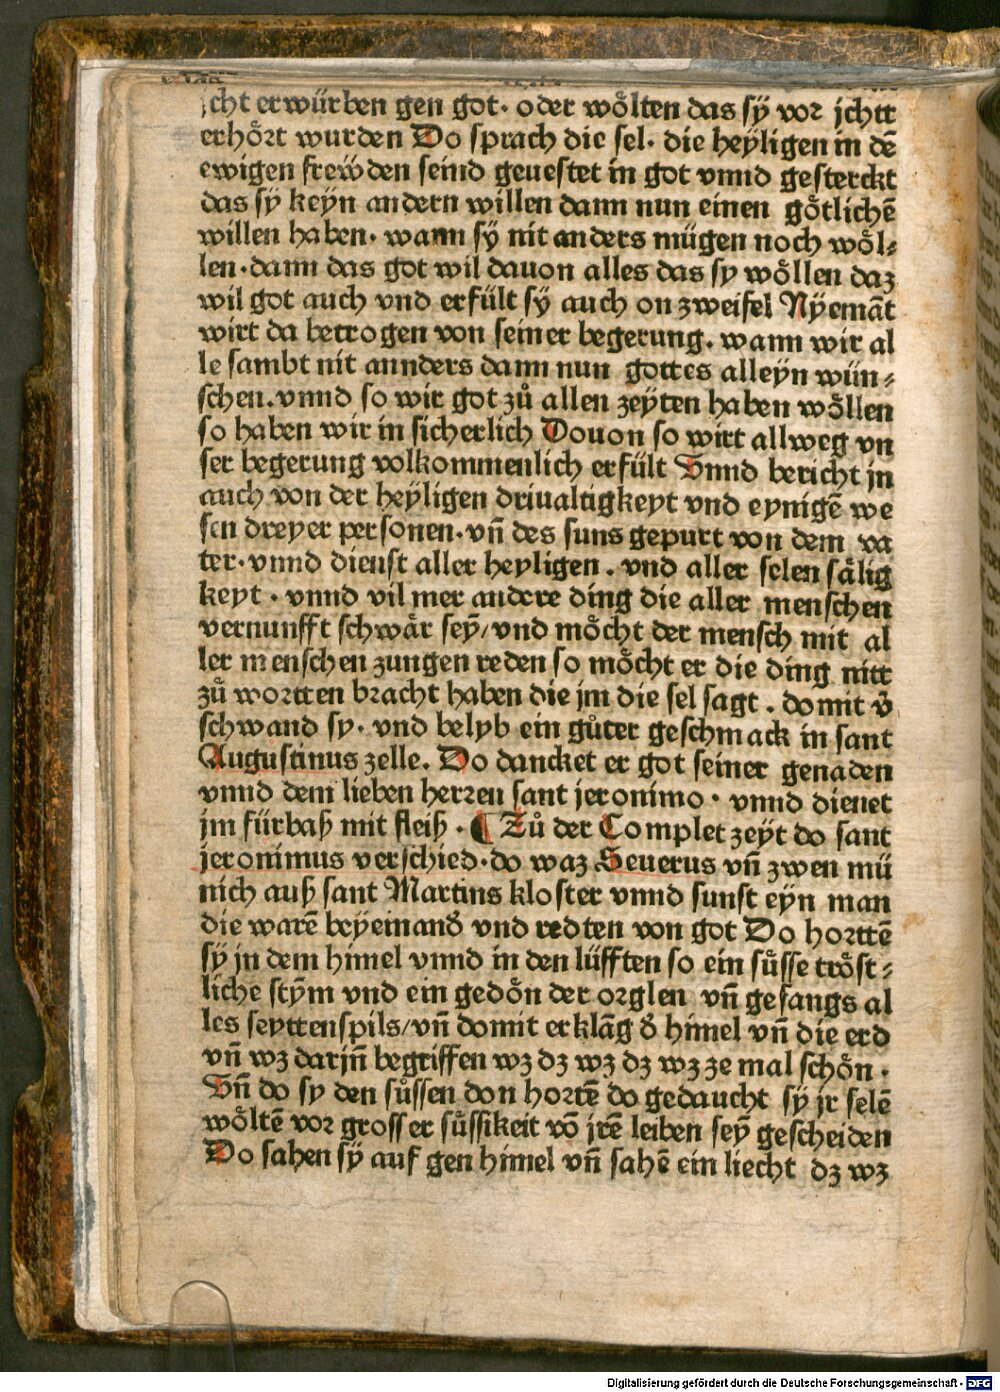 jcht erwürben gen got· oder woͤlten das sÿ vor jchtt
erhoͤrt wurden Do sprach die sel· die heyligen in dē
ewigen freẅden seind geuestet in got vnnd gesterckt
das sÿ keyn andern willen dann nun einen goͤtlichē
willen haben· wann sÿ nit anders mügen noch woͤl⸗
len·dann das got wil dauon alles das sy woͤllen daz
wil got auch vnd erfült sÿ auch on zweifel Nÿemāt
wirt da betrogen von seiner begerung. wann wir al
le sambt nit annders dann nun gottes alleyn wün⸗
schen.vnnd so wir got zů allen zeÿten haben woͤllen
so haben wir in sicherlich Douon so wirt allweg vn
ser begerung volkommenlich erfült Vnnd bericht jn
auch von der heÿligen driualtigkeyt vnd eynigē we
sen dreyer personen·vn̄ des suns gepurt von dem va
ter·vnnd dienst aller heyligen . vnd aller selen saͤlig
keyt · vnnd vil mer andere ding die aller menschen
vernunfft schwaͤr seÿ/vnd moͤcht der mensch mit al
ler menschen zungen reden so moͤcht er die ding nitt
zů wortten bracht haben die jm die sel sagt . domit v̄
schwand sy· vnd belyb ein gůter geschmack in sant
Augustinus zelle. Do dancket er got seiner genaden
vnnd dem lieben herzen sant jeronimo · vnnd dienet
jm fürbaß mit fleiß · ¶ Zů der Complet zeyt do sant
jeronimus verschied·do waz Seuerus vn̄ zwen mü
nich auß sant Martins kloster vnnd sunst eÿn man
die warē beÿeinand̄ vnd redten von got Do hortтē
sÿ jn dem himel vnnd in den lüfften so ein suͤsse troͤst⸗
liche stÿm vnd ein gedoͤn der orglen vn̄ gesangs al
les seyttenspils/vn̄ domit erklāg d̄ himel vn̄ die erd
vn̄ wz darjn̄ begriffen wz dz wz dz wz ze mal schoͤn ·
Vn̄ do sy den suͤssen don hortē do gedaucht sÿ jr selē
woͤltē vor grosser suͤssikeit vō jrē leiben seÿ gescheiden
Do sahen sÿ auf gen himel vn̄ sahē ein liecht dz wz
Digitalisierung gefördert durch die Deutsche Forschungsgemeinschaft · DFG